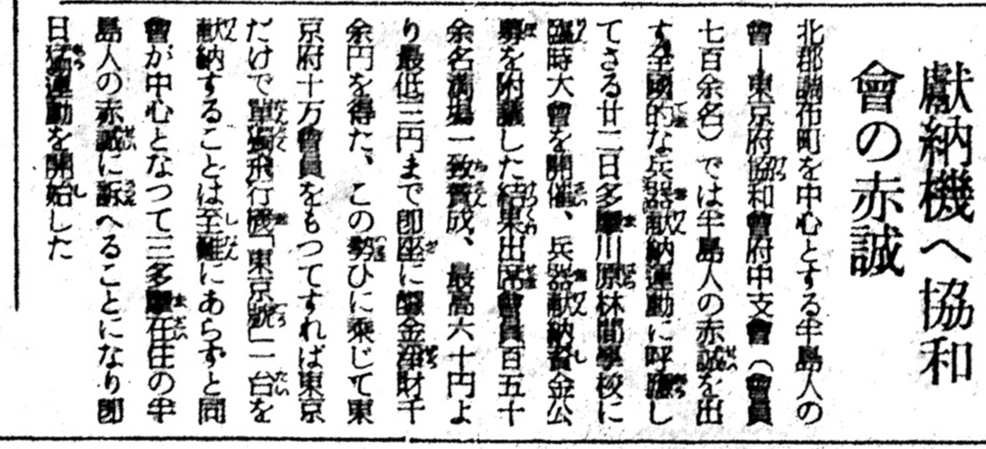 獻納機へ協和
會の赤誠
北郡調布町を中心とする半島人の
會―東京府協和會府中支會（會員
七百余名）では半島人の赤誠を出
す全國的な兵器献納運動に呼應し
てさる廿二日多摩川原林間學校に
臨時大會を開催、兵器献納資金公
募を附議した結果出席會員百五十
余名満場一致賛成、最高六十円よ
り最低三円まで即座に醵金浄財千
余円を得た、この勢ひに乗じて東
京府十万會員をもつてすれば東京
だけで單獨飛行機「東京號」一台を
献納することは至難にあらずと同
會が中心となつて三多摩在住の半
島人の赤誠に訴へることになり即
日猛運動を開始した